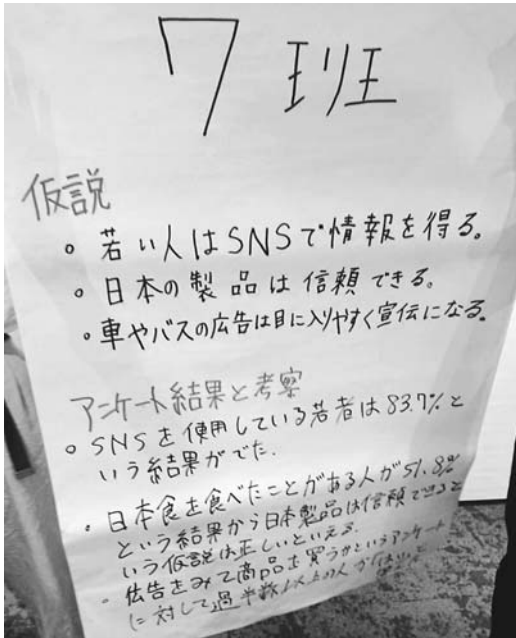 7 班
仮説
。若い人はSNSで情報を得る。
。日本の製品は信頼できる。
・車やバスの広告は目に入りやすく宣伝になる。
アンケート結果と考察
。SNSを使用している若者は83.7%と
いう結果がでた.
・日本食を食べたことがある人が51.8%
という結果から日本製品は信頼できると
いう仮説は正しいといえる.
・広告をみて商品を買うかというアンケート
に対して過半数以上の人が